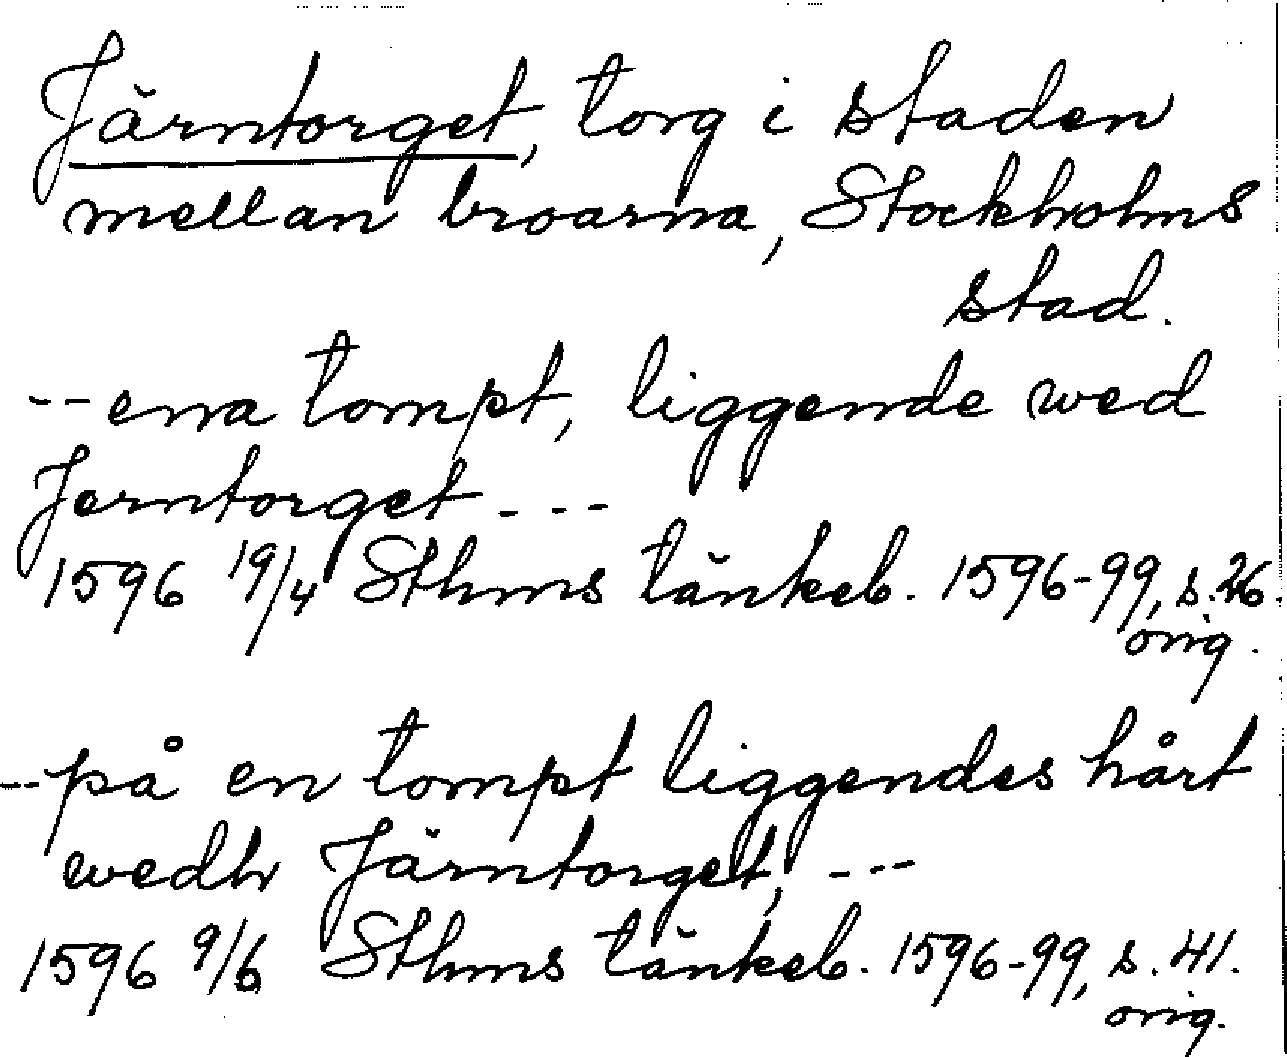 Järntorget, torg i staden
mellan broarna, Stockholms
stad.
-- ena tompt, liggende wed
Jerntorget ---
1596 19/4 Sthms tänkeb. 1596-99, s. 26.
orig.
-- på en tompt liggendes hårt
wedh Järntorget, ---
1596 9/6 Sthms tänkeb. 1596-99, s. 41.
orig.